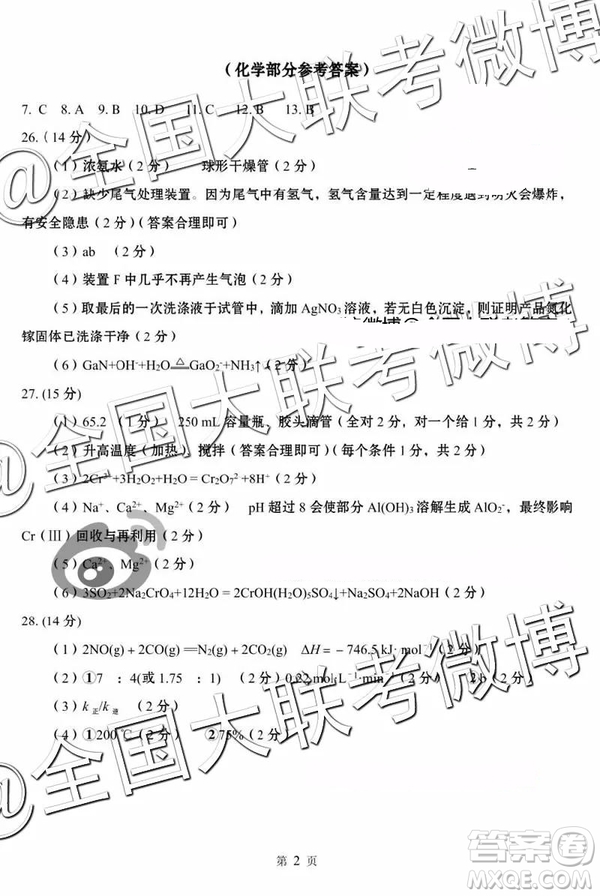 （化学部分参考答案）
7. C 8. A 9. B 10. D 11. C 12. B 13. B
26.（14 分）
（1）浓氨水（2 分） 球形干燥管（2 分）
（2）缺少尾气处理装置。因为尾气中有氢气，氢气含量达到一定程度遇到明火会爆炸，
有安全隐患（2 分）（答案合理即可）
（3）ab （2 分）
（4）装置 F 中几乎不再产生气泡（2 分）
（5）取最后的一次洗涤液于试管中，滴加 AgNO₃ 溶液，若无白色沉淀，则证明产品氮化
镓固体已洗涤干净（2 分）
（6）GaN+OH⁻+H₂O △ GaO₂⁻+NH₃↑（2 分）
27. (15 分)
（1）65.2 （1 分） 250 mL 容量瓶，胶头滴管（全对 2 分，对一个给 1 分，共 2 分）
（2）升高温度（加热），搅拌（答案合理即可）（每个条件 1 分，共 2 分）
（3）2Cr³⁺+3H₂O₂+H₂O = Cr₂O₇²⁻+8H⁺（2 分）
（4）Na⁺、Ca²⁺、Mg²⁺（2 分） pH 超过 8 会使部分 Al(OH)₃ 溶解生成 AlO₂⁻，最终影响
Cr（Ⅲ）回收与再利用（2 分）
（5）Ca²⁺、Mg²⁺（2 分）
（6）3SO₂+2Na₂CrO₄+12H₂O = 2CrOH(H₂O)₅SO₄↓+Na₂SO₄+2NaOH（2 分）
28. (14 分)
（1）2NO(g) + 2CO(g) ⇌ N₂(g) + 2CO₂(g) ΔH =－746.5 kJ· mol⁻¹（2 分）
（2）①7 ：4(或 1.75 ：1)（2 分） 0.22 mol·L⁻¹·min⁻¹（2 分） b（2 分）
（3）k 正/k 逆 （2 分）
（4）①200℃（2 分） ②75%（2 分）
第 2 页
@全国大联考微博
@全国大联考微博
@全国大联考微博
答案卷
MXQE.COM